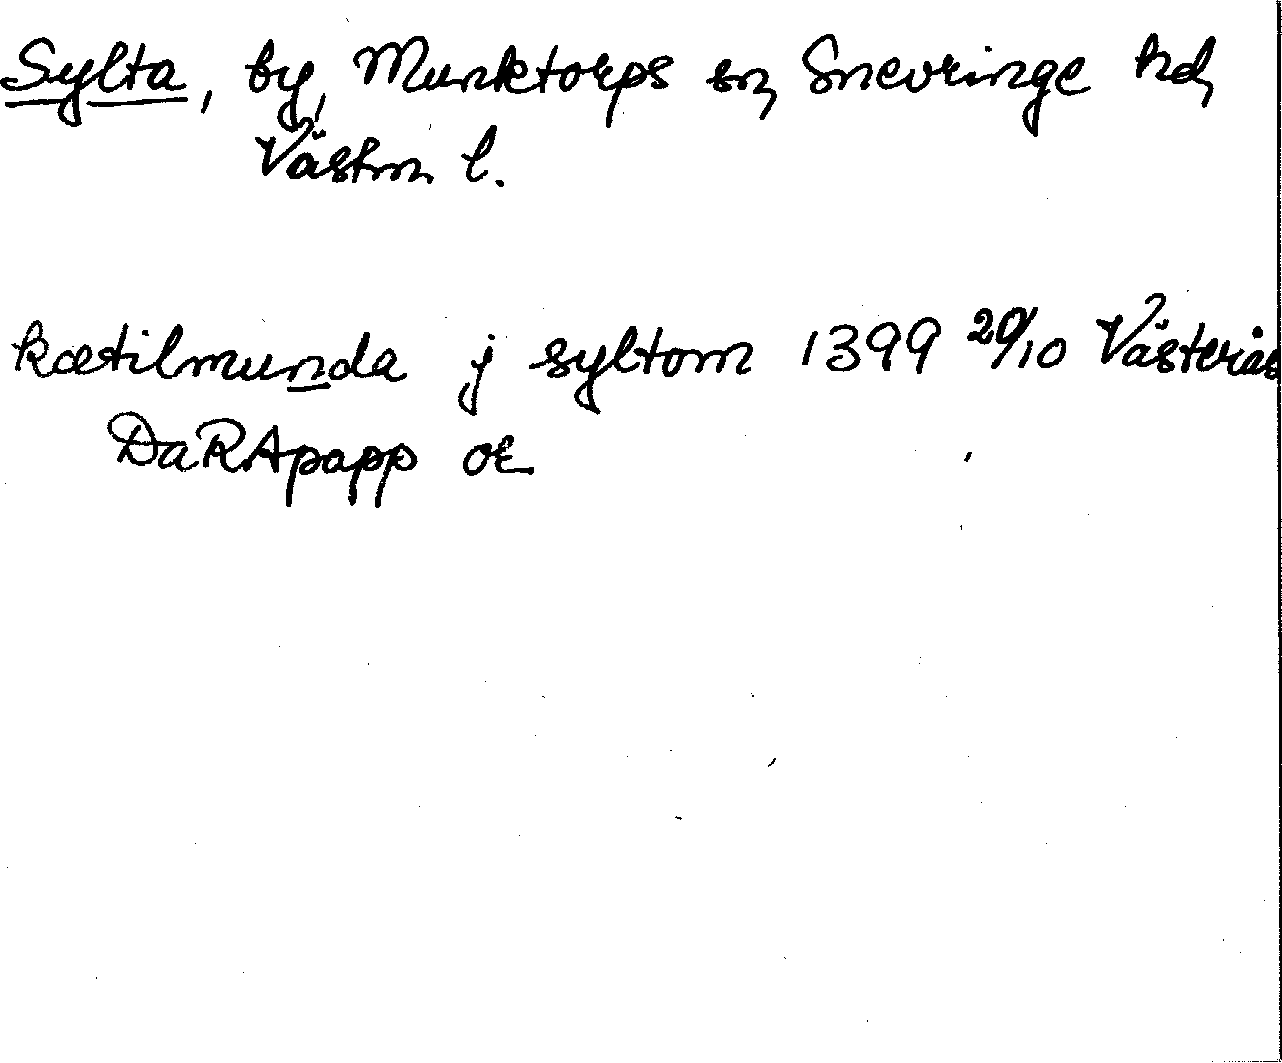 Sylta, by, Munktorps sn, Snevringe hd,
Västm l.
kætilmunda j syltom 1399 20/10 Västerås
DaRApapp or